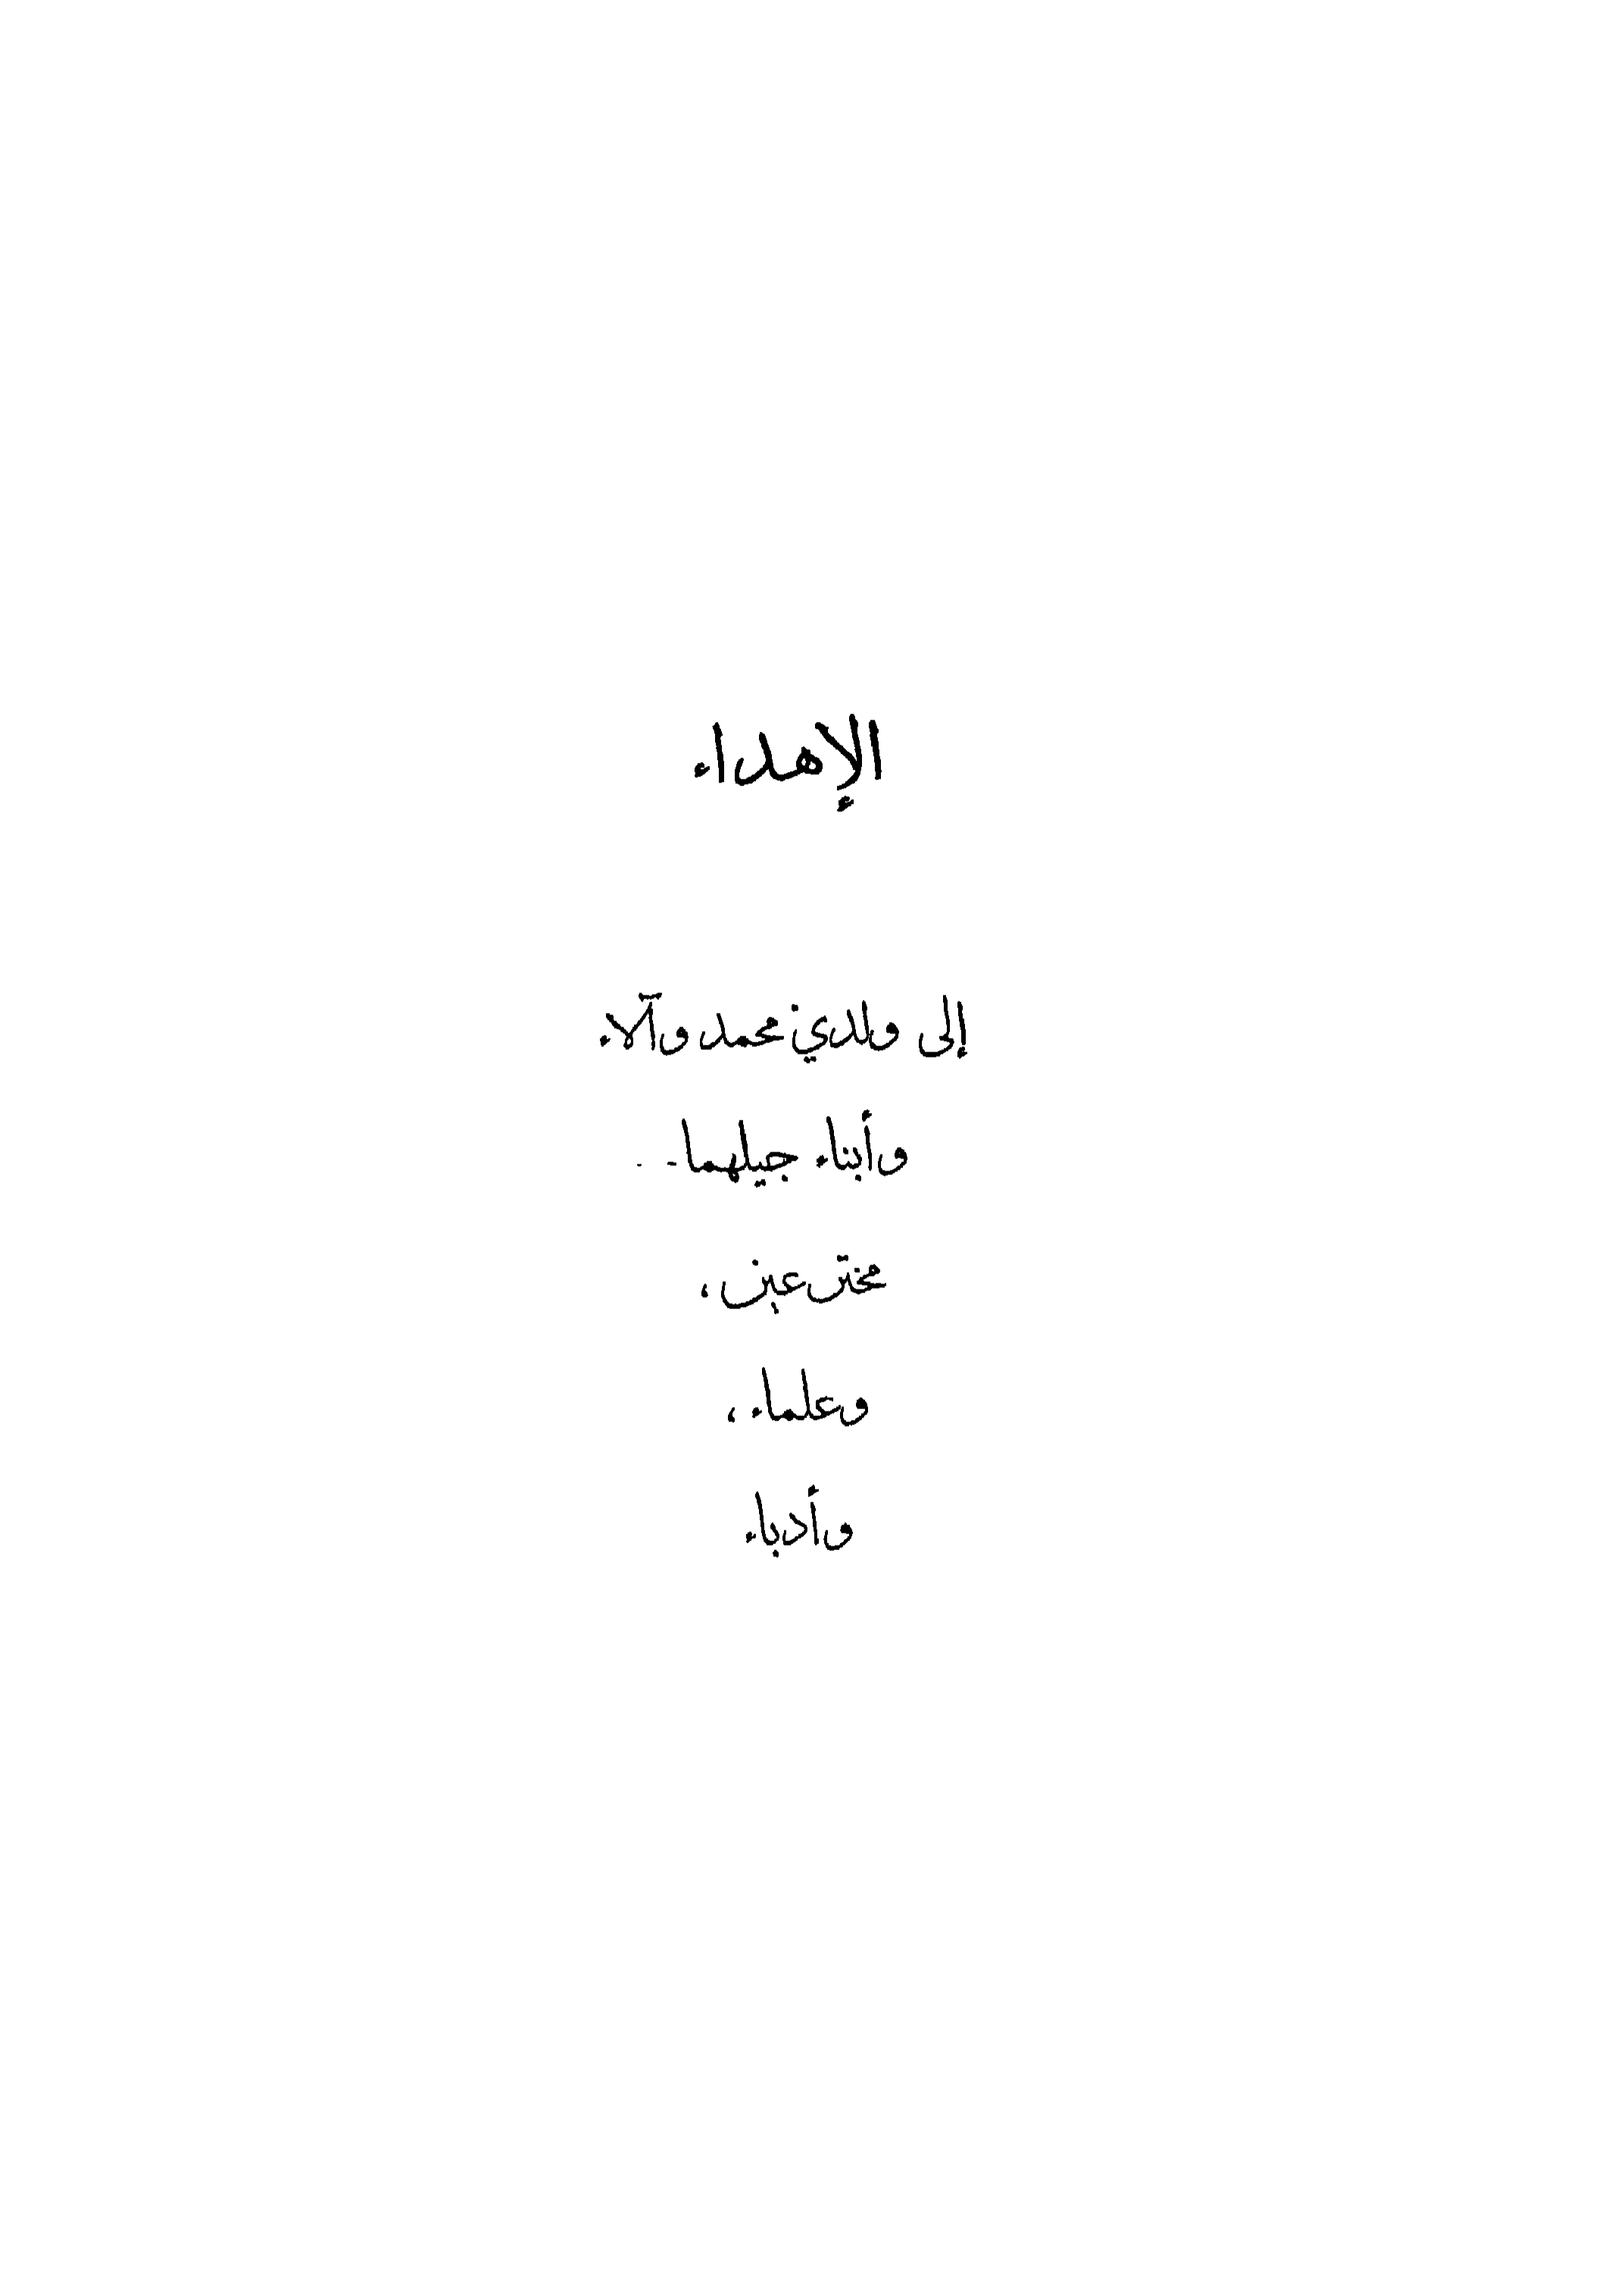 الإهداء
إلى ولدي محمد وآلاء
وأبناء جيلهما..
مخترعين،
وعلماء،
وأدباء